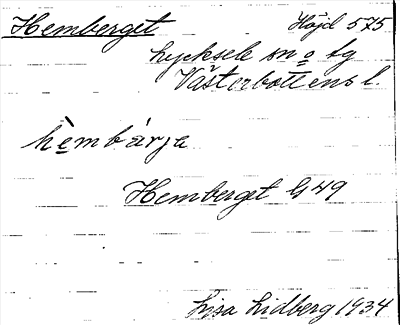 Hemberget Höjd 575
Lycksele sn o tg
Västerbottens l.
hèmbárja
Hemberget G 49
Lisa Lidberg 1934